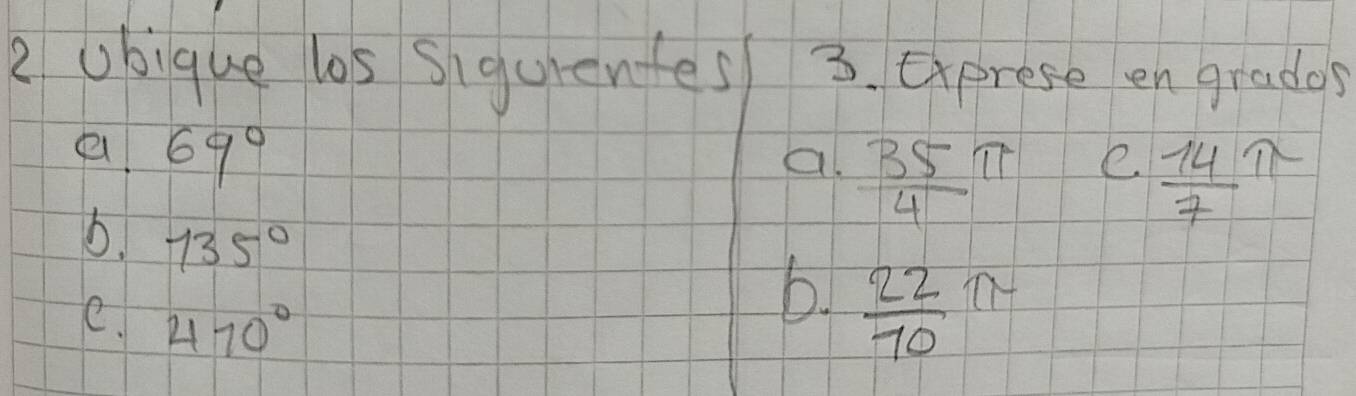 2 Ubique los Siguientes
a. 69°
b. 135°
c. 410°
3. Exprese en grados
a. 35/4 π c. 14/7 π
b. 22/10 π